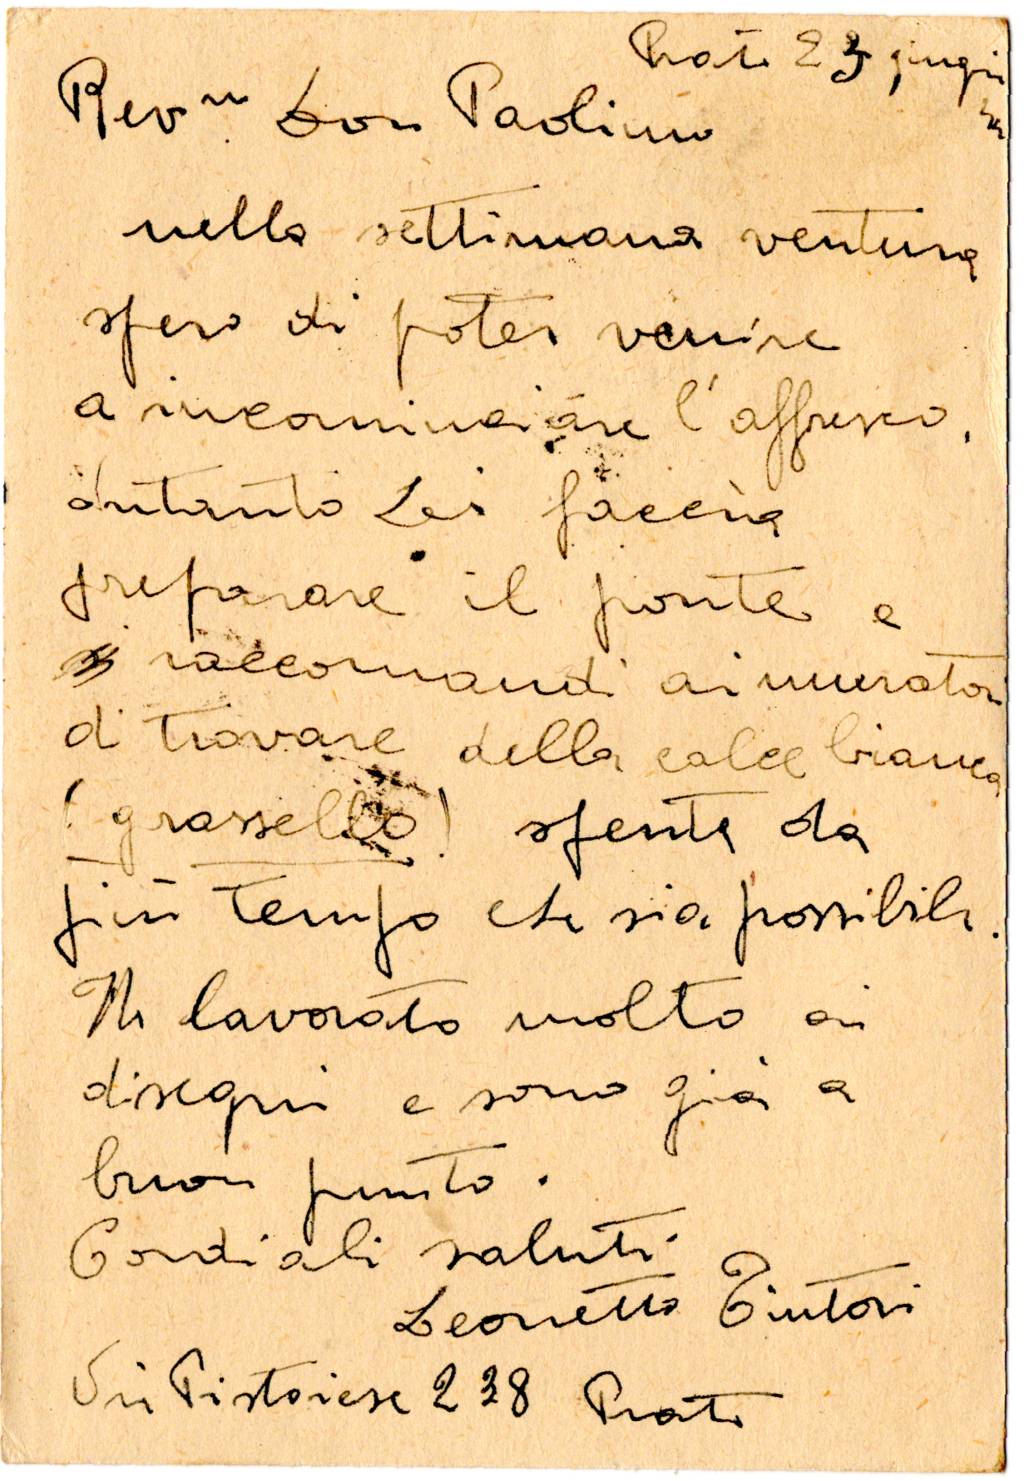 Prato 23 giugno
Rev.mo Don Paolino
nella settimana ventura
spero di poter venire
a incominciare l'affresco.
Intanto Lei faccia
preparare il ponte e
raccomandi ai muratori
di trovare della calce bianca
(grassello) spenta da
più tempo che sia possibile.
Ho lavorato molto ai
disegni e sono già a
buon punto.
Cordiali saluti
Leonetto Tintori
Via Pistoiese 238 Prato